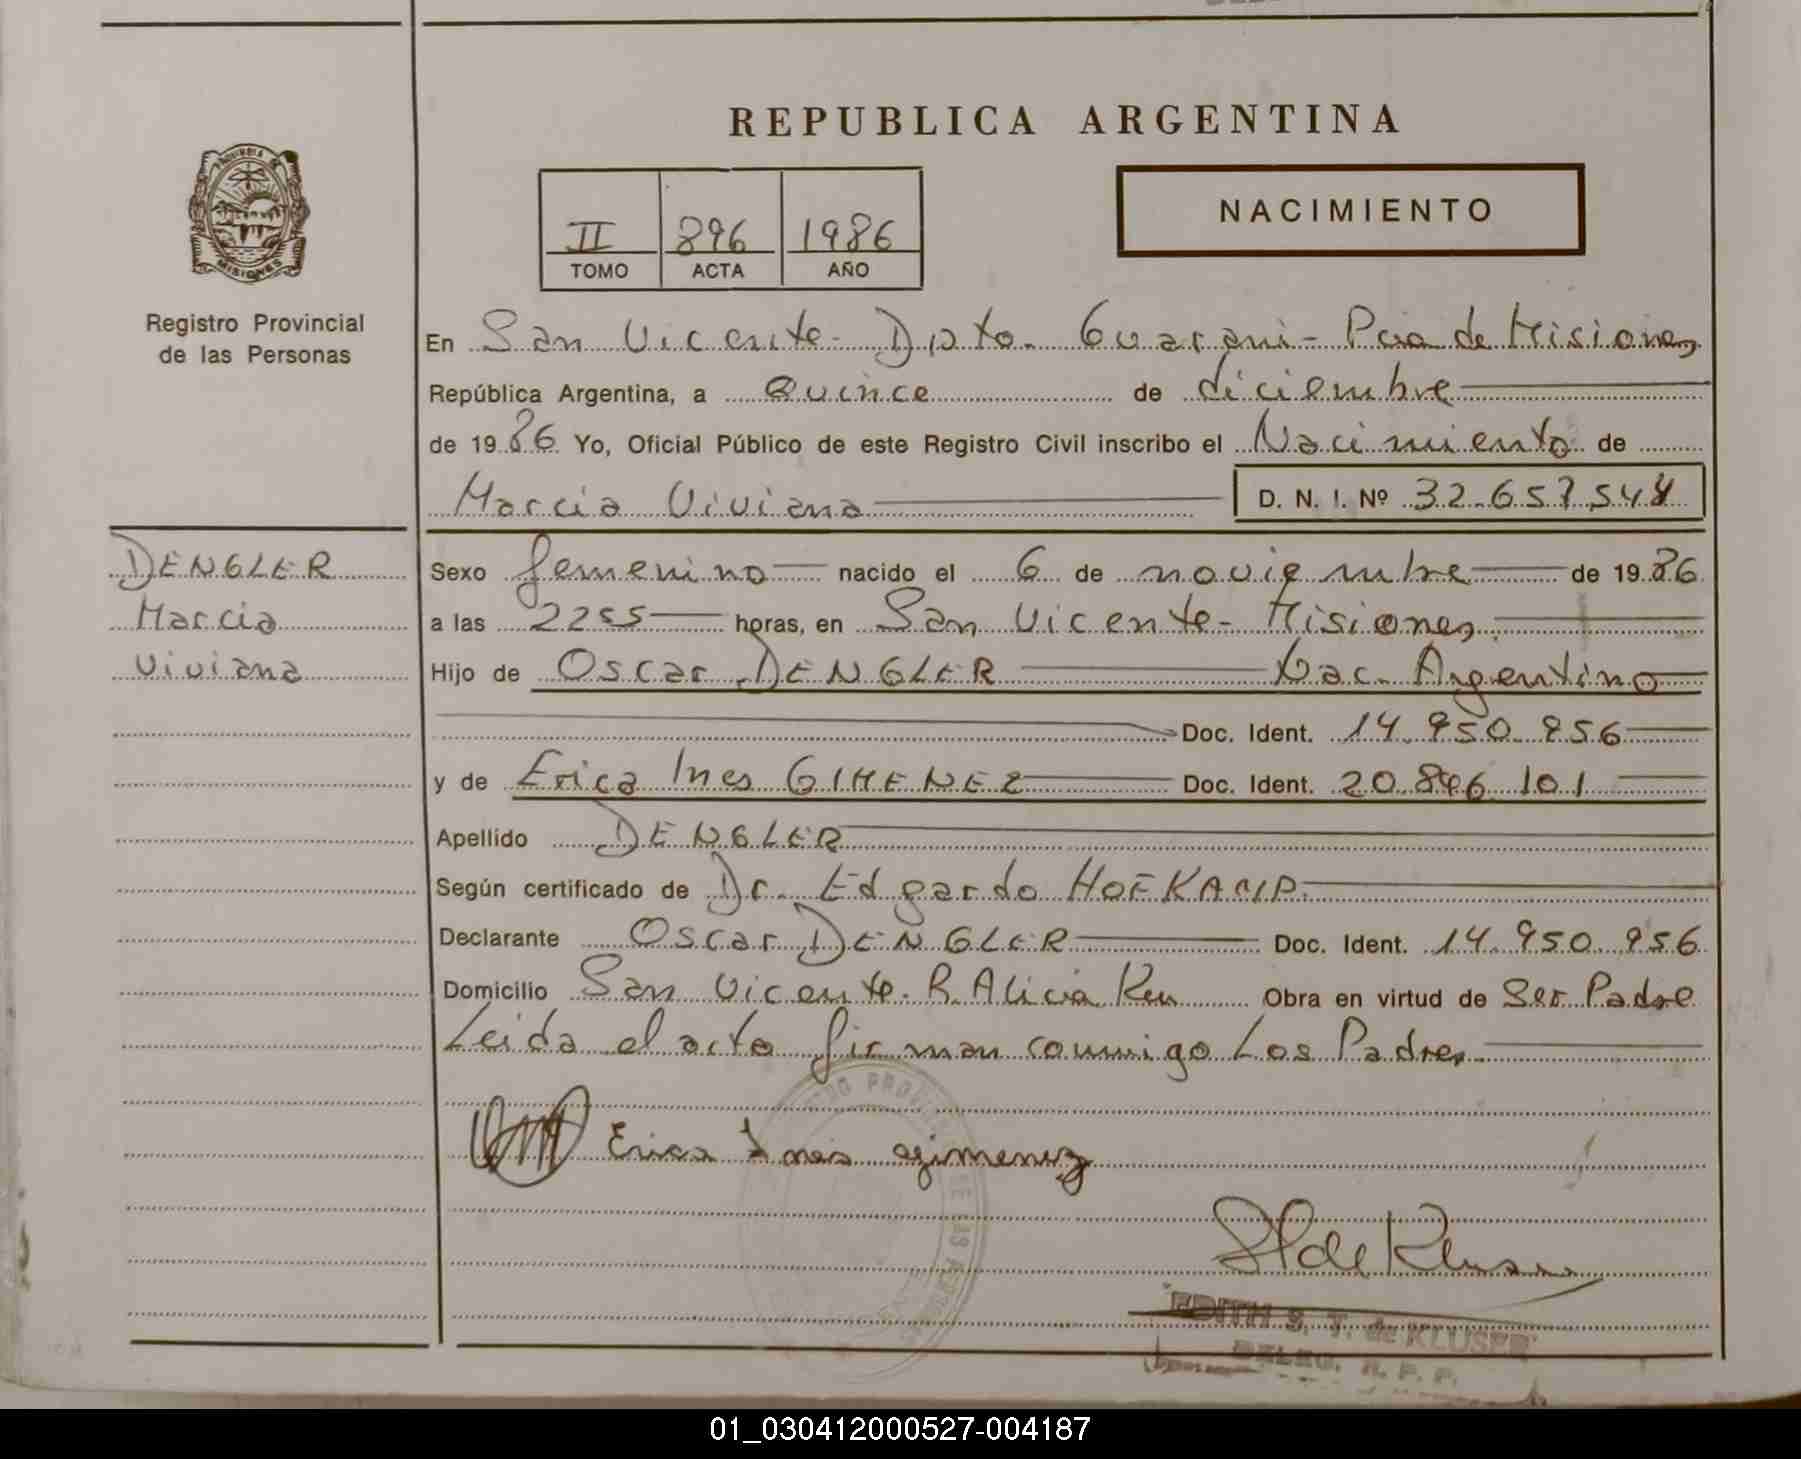 REPUBLICA ARGENTINA
PROVINCIA DE
MISIONES
Registro Provincial
de las Personas
II 896 1986
TOMO ACTA AÑO
NACIMIENTO
En San Vicente - Dpto. Guarani - Pcia de Misiones
República Argentina, a Quince de diciembre
de 1986 Yo, Oficial Público de este Registro Civil inscribo el Nacimiento de
Marcia Viviana D. N. I. Nº
DENGLER
Marcia
Viviana
Sexo femenino nacido el 6 de noviembre de 1986
a las 2255 horas, en San Vicente - Misiones
Hijo de Oscar DENGLER Nac. Argentino
Doc. Ident. 14.950.956
y de Erica Ines GIMENEZ Doc. Ident. 20.846.101
Apellido DENGLER
Según certificado de Dr. Edgardo HOFKAMP.
Declarante Oscar DENGLER Doc. Ident. 14.950.956
Domicilio San Vicente. R. Alicia Km Obra en virtud de Ser Padre
Leida el acta firman conmigo Los Padres
Erica Ines gimenez
S T de Kluser
EDITH S. T. de KLUSER
DELEG. R. P. P.
01_030412000527-004187